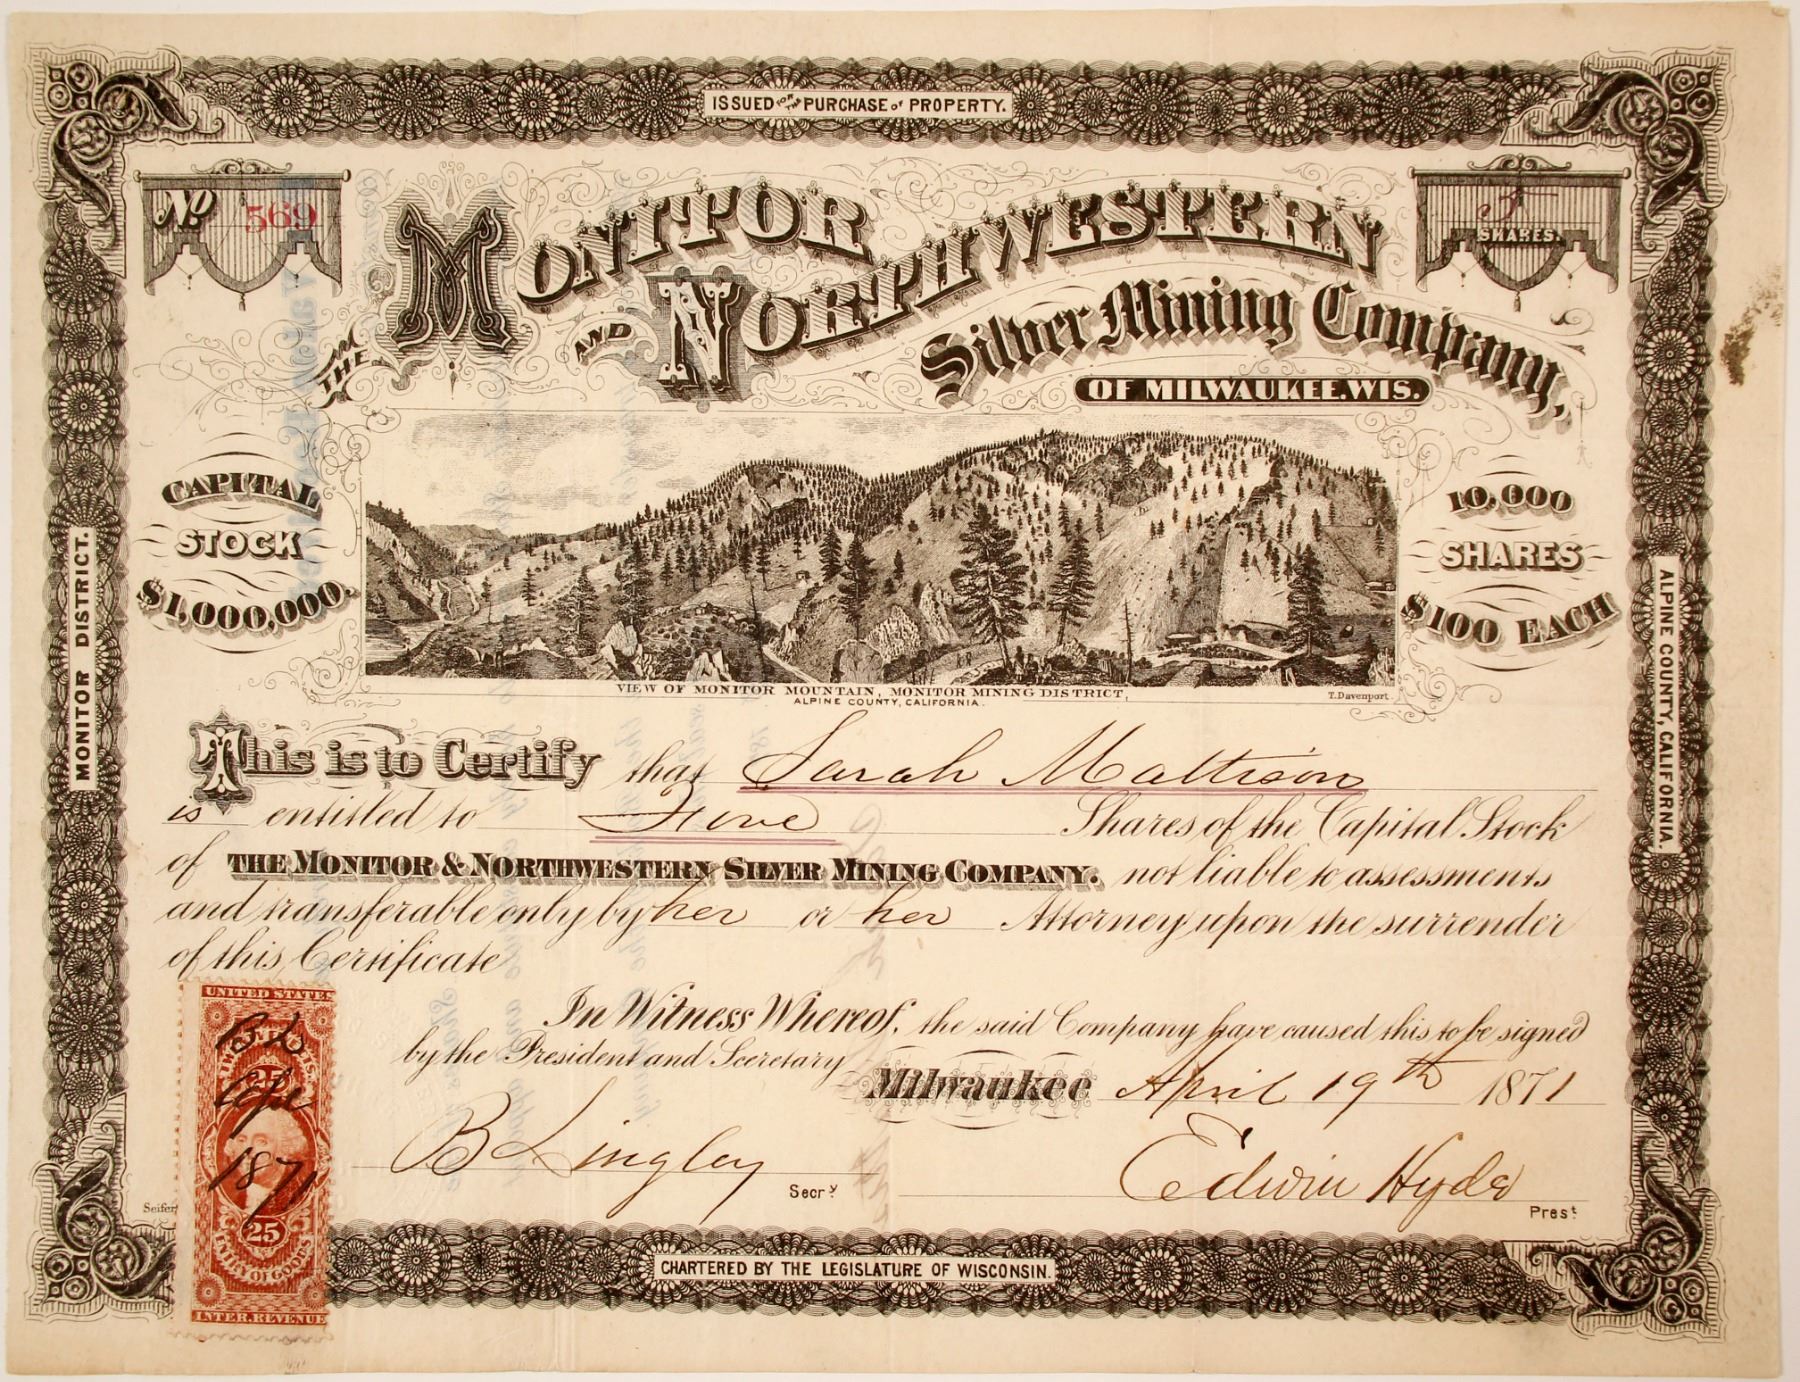 ISSUED FOR THE PURCHASE OF PROPERTY.
No 569
5
SHARES.
THE MONITOR AND NORTHWESTERN
Silver Mining Company,
OF MILWAUKEE, WIS.
CAPITAL
STOCK
$1,000,000.
10,000
SHARES
$100 EACH
MONITOR DISTRICT.
ALPINE COUNTY, CALIFORNIA.
VIEW OF MONITOR MOUNTAIN, MONITOR MINING DISTRICT,
ALPINE COUNTY, CALIFORNIA.
T. Davenport
This is to Certify that Sarah Mattison
is entitled to Five Shares of the Capital Stock
of THE MONITOR & NORTHWESTERN SILVER MINING COMPANY. not liable to assessments
and transferable only by her or her Attorney upon the surrender
of this Certificate
In Witness Whereof, the said Company have caused this to be signed
by the President and Secretary
Milwaukee April 19th 1871
B Lingley Secry
Edwin Hyde Prest
UNITED STATES
TWENTY FIVE CTS.
25
B L
1871
25
ENTRY OF GOODS
INTER. REVENUE
Seifert
CHARTERED BY THE LEGISLATURE OF WISCONSIN.